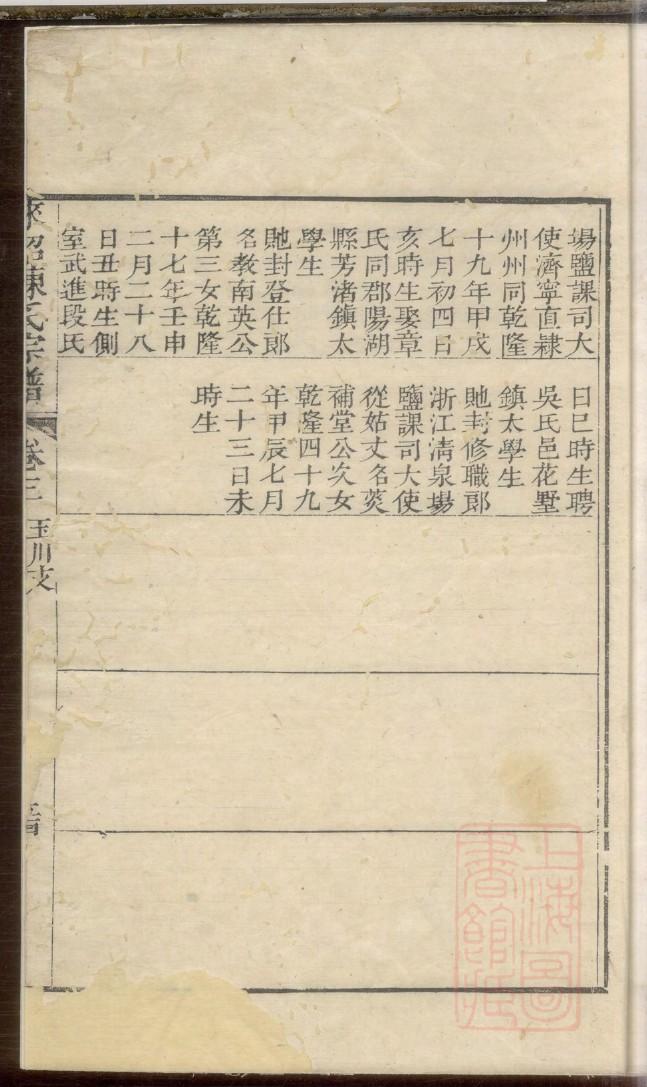 場鹽課司大
使濟寧直隸
州州同乾隆
十九年甲戌
七月初四日
亥時生娶章
氏同郡陽湖
縣芳渚鎮太
學生
貤封登仕郎
名教南英公
第三女乾隆
十七年壬申
二月二十八
日丑時生側
室武進段氏
日巳時生聘
吳氏邑花墅
鎮太學生
貤封修職郎
浙江清泉場
鹽課司大使
從姑丈名莢
補堂公次女
乾隆四十九
年甲辰七月
二十三日未
時生
陳氏宗譜
卷三
玉川支
上海圖
書館藏